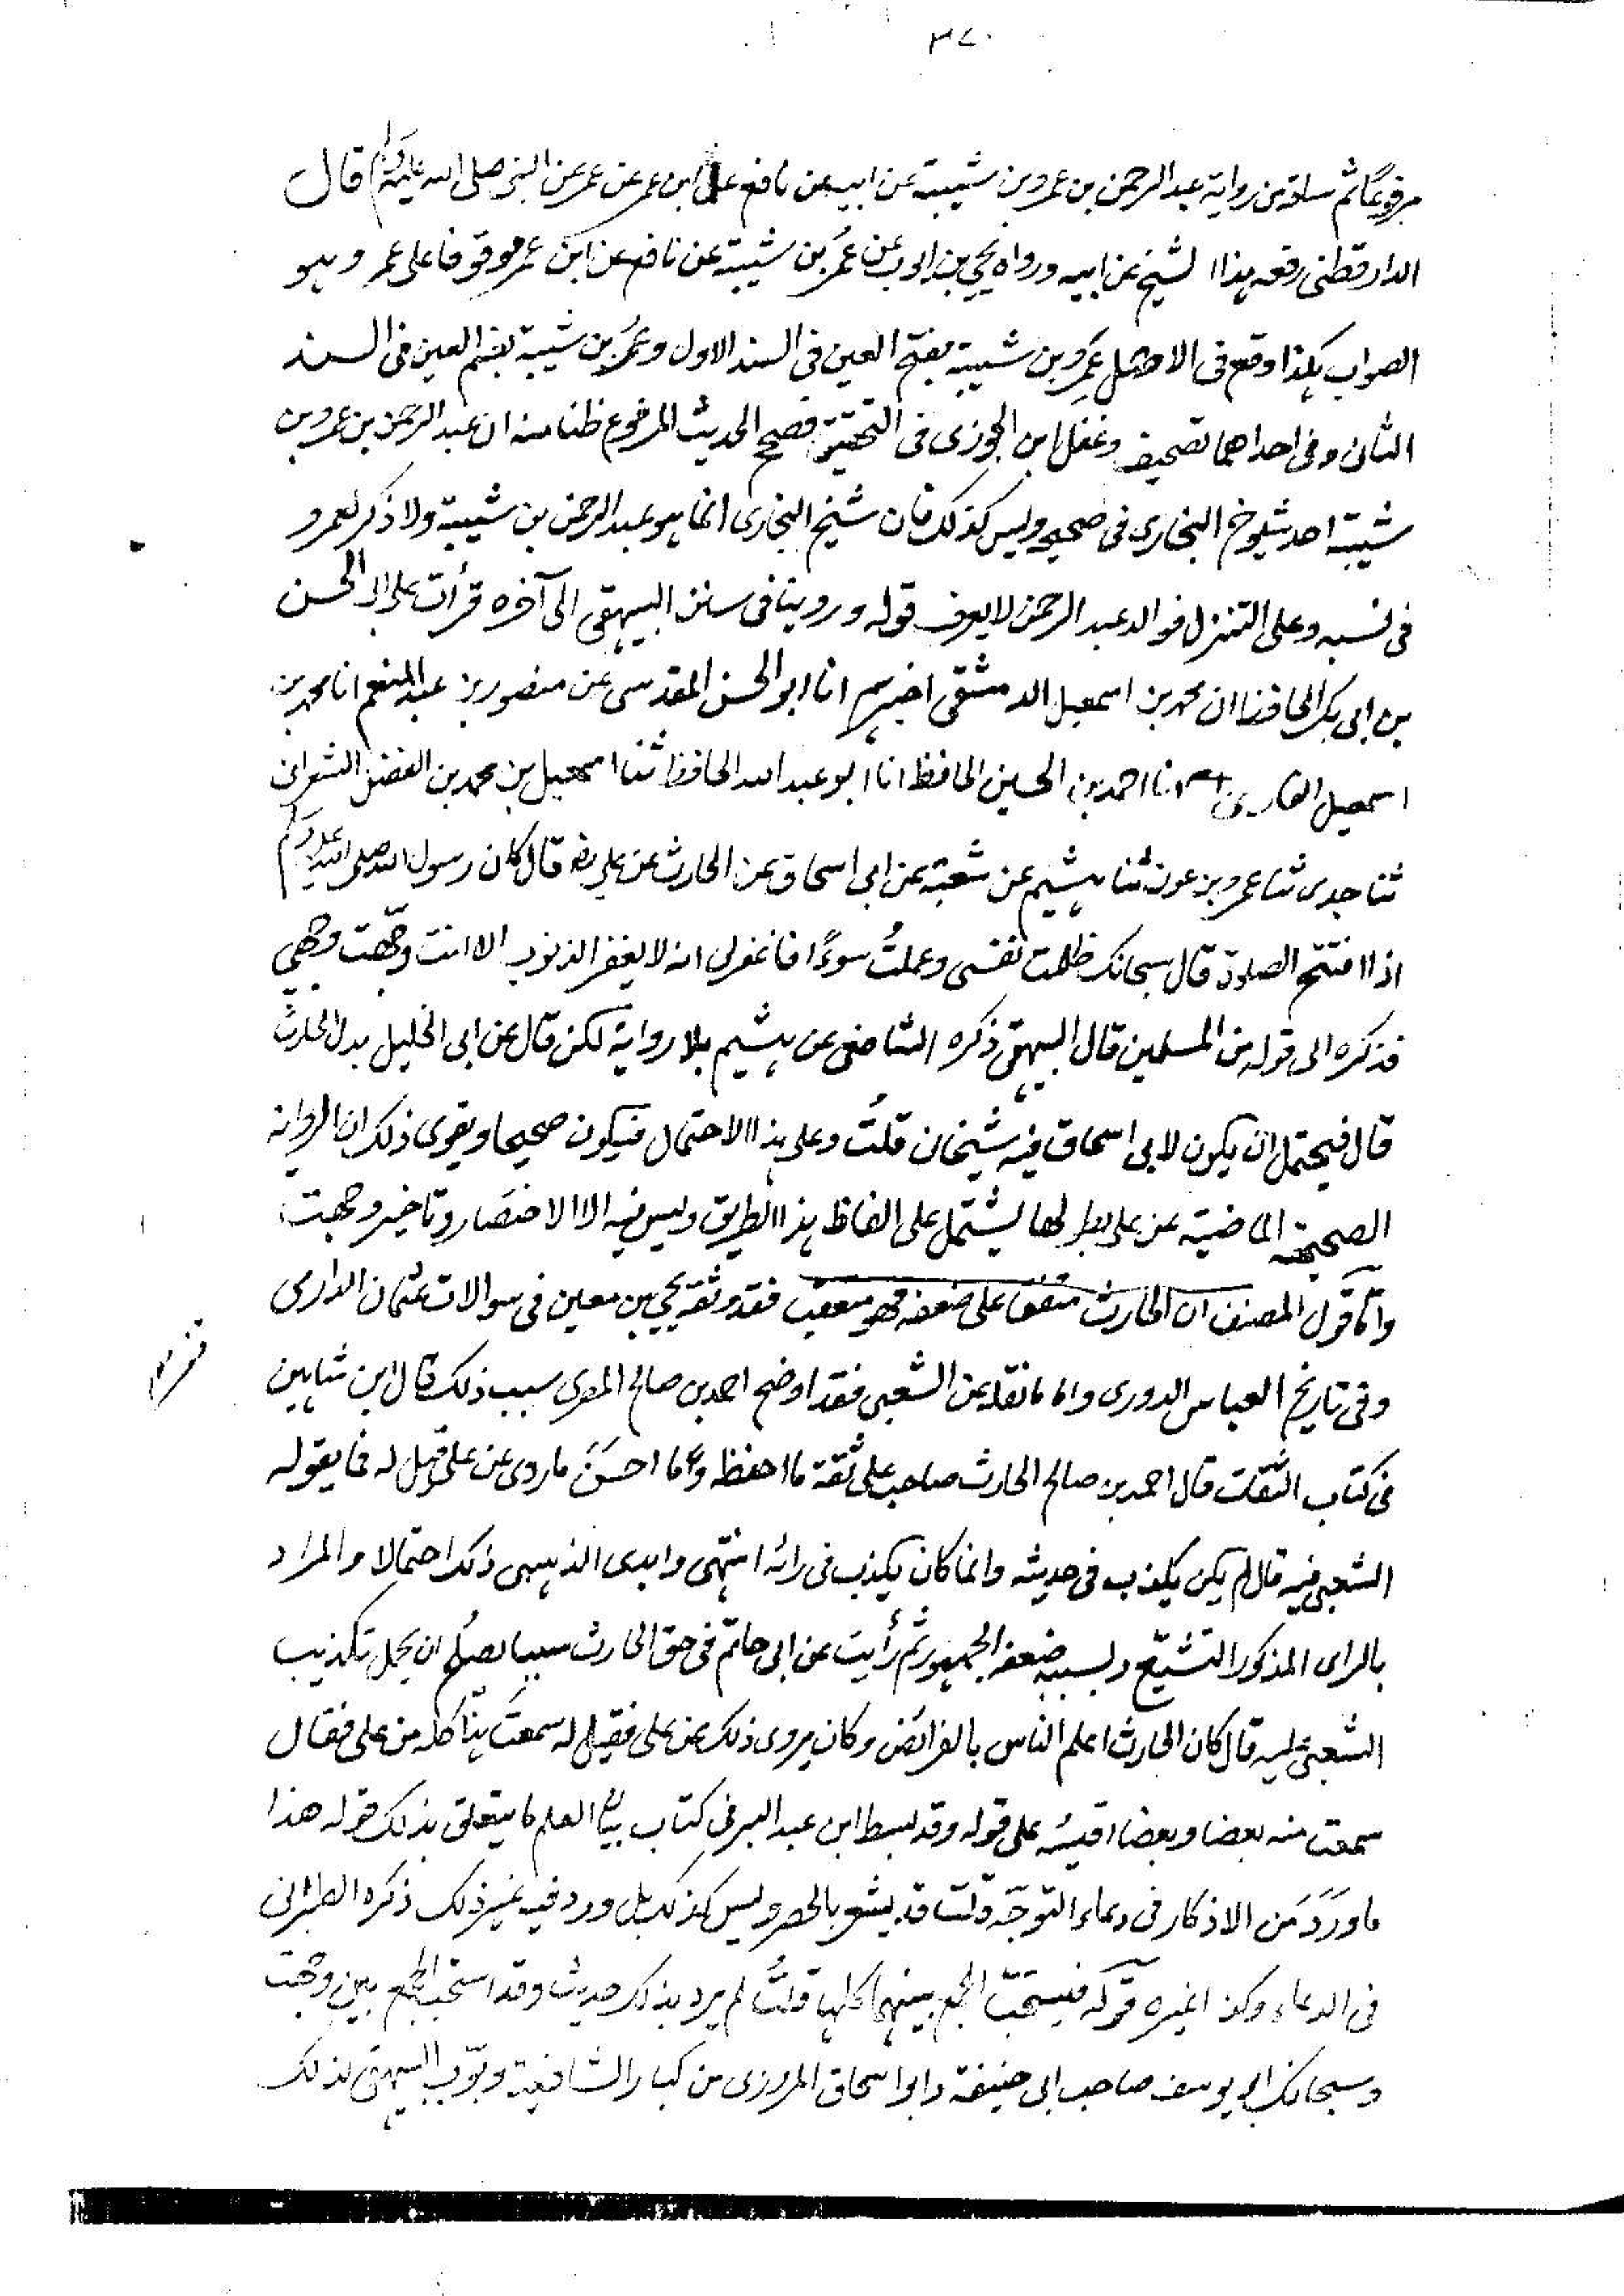 ٣٧٠
مرفوعا ثم ساقه من رواية عبد الرحمن بن عمرو بن شيبة عن ابيه عن نافع عن ابن عمر عن عمر عن النبي صلى الله عليه وسلم قال
الدارقطنى رفعه هذا الشيخ عن ابيه ورواه يحيى بن ايوب عن عمر بن شيبة عن نافع عن ابن عمر موقوفا على عمر وهو
الصواب هكذا وقع فى الاصل عمرو بن شيبة بفتح العين فى السند الاول وعمر بن شيبة بضم العين فى السند
الثانى وفى احداهما تصحيف وغفل ابن الجوزى فى التحقيق فصحح الحديث المرفوع ظنا منه ان عبد الرحمن بن عمرو بن
شيبة احد شيوخ البخارى فى صحيحه وليس كذلك فان شيخ البخارى انما هو عبد الرحمن بن شيبة ولا ذكر لعمرو
فى نسبه وعلى التنزل فوالد عبد الرحمن لا يعرف قوله وروينا فى سنن البيهقى الى آخره قرأت على ابى الحسن
بن ابى بكر الحافظ ان محمد بن اسمعيل الدمشقى اخبرهم انا ابو الحسن المقدسى عن منصور بن عبد المنعم انا محمد بن
اسمعيل الفارسى انا احمد بن الحسين الحافظ انا ابو عبد الله الحافظ ثنا اسمعيل بن محمد بن الفضل الشعرانى
ثنا جدى ثنا عمرو بن عون ثنا هشيم عن شعبة عن ابى اسحاق عن الحارث عن على رض قال كان رسول الله صلى الله عليه وسلم
اذا افتتح الصلوة قال سبحانك ظلمت نفسى وعملت سوءًا فاغفرلى انه لا يغفر الذنوب الا انت وجّهت وجهي
فذكره الى قوله من المسلمين قال البيهقى ذكره الشافعى عن هشيم بلا رواية لكن قال عن ابى الخليل بدل الحارث
قال فيحتمل ان يكون لابى اسحاق فيه شيخان قلتُ وعلى هذا الاحتمال فيكون صحيحا ويقوى ذلك ان الرواية
الصحيحة الماضية عن على بطولها يشتمل على الفاظ هذا الطريق وليس فيه الا الاختصار وتاخير وجهت
واما قول المصنف ان الحارث متفق على ضعفه فهو متعقب فقد وثقه يحيى بن معين فى سوالات عثمان الدارمى
وفى تاريخ العباس الدورى واما ما نقله عن الشعبى فقد اوضح احمد بن صالح المصرى سبب ذلك قال ابن شاهين
فى كتاب الثقات قال احمد بن صالح الحارث صاحب على ثقة ما احفظه وما احسن ما روى عن على قيل له فما يقوله
الشعبى فيه قال لم يكن يكذب فى حديثه وانما كان يكذب فى رائه انتهى وابدى الذهبى ذلك احتمالا والمراد
بالراى المذكور التشيّع وبسببه ضعفه الجمهور ثم رأيت عن ابى حاتم فى حق الحارث سببا يصلح ان يحمل تكذيب
الشعبى عليه قال كان الحارث اعلم الناس بالفرائض وكان يروى ذلك عن على فقيل له سمعت هذا كله من على فقال
سمعت منه بعضا وبعضا اقيسُه على قوله وقد بسط ابن عبد البر فى كتاب بيان العلم ما يتعلق بذلك قوله هذا
ما ورد من الاذكار فى دعاء التوجه قلت قد يشعر بالحصر وليس كذلك بل ورد فيه غير ذلك ذكره الطبرانى
فى الدعاء وكذا غيره قوله فيستحبّ الجمع بينهما كلها قلتُ لم يرد بذلك حديث وقد استحب الجمع بين وجهت
وسبحانك ابو يوسف صاحب ابى حنيفة وابو اسحاق المروزى من كبار الشافعية وبوّب البيهقى لذلك